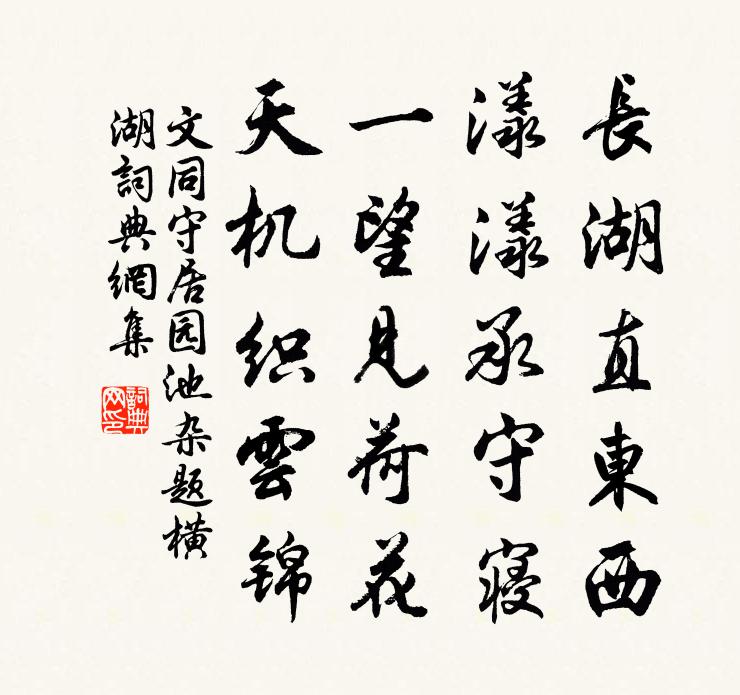 長湖直東西
漾漾承守寝
一望見荷花
天机织雲锦
文同守居园池杂题横
湖詞典網集
詞典
网印